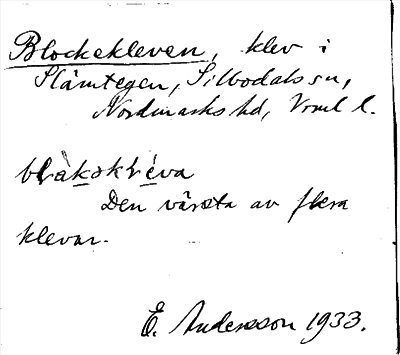 Blockekleven, klev i
Slämtegen, Silbodals sn,
Nordmarks hd, Vrml l.
blàkəkléva
Den värsta av flera
klevar.
E. Andersson 1933.